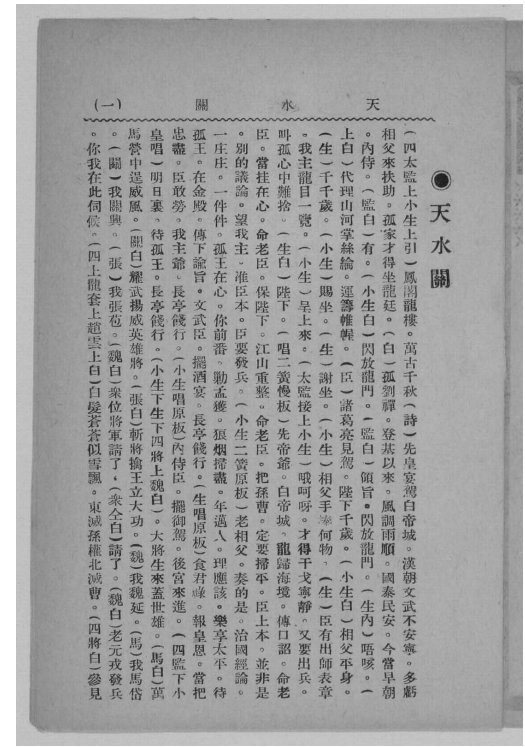 天水關 (一)
●天水關
(四太監上小生上引)鳳閣龍樓。萬古千秋(詩)先皇宴駕白帝城。漢朝文武不安寧。多虧
相父來扶助。孤家才得坐龍廷。(白)孤劉禪。登基以來。風調雨順。國泰民安。今當早朝
。內侍。(監白)有。(小生白)閃放龍門。(監白)領旨。閃放龍門。(生內)唔咳。(
上白)代理山河掌絲綸。運籌帷幄。(臣)諸葛亮見駕。陛下千歲。(小生白)相父平身。
(生)千千歲。(小生)賜坐。(生)謝坐。(小生)相父手捧何物。(生)臣有出師表章
。我主龍目一覽。(小生)呈上來。(太監接上小生)哦呵呀。才得干戈寧靜。又要出兵。
叫孤心中難捨。(生白)陛下。(唱二簧慢板)先帝爺。白帝城。龍歸海境。傳口詔。命老
臣。當挂在心。命老臣。保陛下。江山重整。命老臣。把孫曹。定要掃平。臣上本。並非是
。別的議論。望我主。准臣本。臣要發兵。(小生二簧原板)老相父。奏的是。治國經論。
一庄庄。一件件。孤王在心。你前番。勦孟獲。狼烟掃盡。年邁人。理應該。樂享太平。待
孤王。在金殿。傳下諭旨。文武臣。擺酒宴。長亭餞行。(生唱原板)食君祿。報皇恩。當把
忠盡。臣敢勞。我主爺。長亭餞行。(小生唱原板)內侍臣。擺御駕。後宮來進。(四監下小
皇唱)明日裏。待孤王。長亭餞行。(小生下生下四將上魏白)。大將生來蓋世雄。(馬白)萬
馬營中逞威風。(關白)耀武揚威英雄將。(張白)斬將擒王立大功。(魏)我魏延。(馬)我馬岱
。(關)我關興。(張)我張苞。(魏白)衆位將軍請了。(衆仝白)請了。(魏白)老元戎發兵
。你我在此伺候。(四上龍套上趙雲上白)白髮蒼蒼似雪飄。東滅孫權北滅曹。(四將白)參見